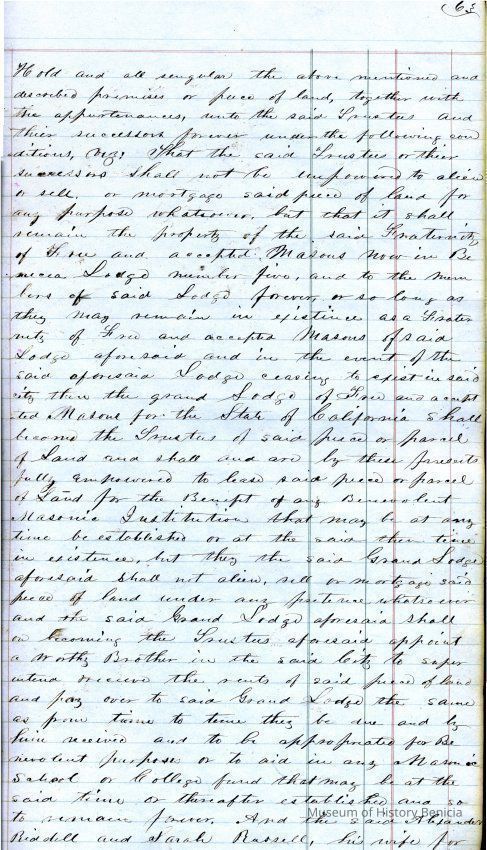 63
Hold and all singular the above mentioned and
described premises or piece of land, together with
the appurtenances, unto the said Trustees and
their successors forever under the following con
ditions, viz; That the said Trustees or their
successors shall not be empowered to alien
or sell, or mortgage said piece of land for
any purpose whatsoever, but that it shall
remain the property of the said Fraternity
of Free and accepted Masons now in Be
necia Lodge number five, and to the mem
bers of said Lodge forever, or so long as
they may remain in existence as a Frater
nity of Free and accepted Masons of said
Lodge aforesaid and in the event of the
said aforesaid Lodge ceasing to exist in said
city then the grand Lodge of Free and accept
ted Masons for the State of California shall
become the Trustees of said piece or parcel
of Land and shall and are by these presents
fully empowered to lease said piece or parcel
of Land for the Benefit of any Benevolent
Masonic Institution that may be at any
time be established or at the said then time
in existence, but they the said Grand Lodge
aforesaid shall not alien, sell or mortgage said
piece of land under any pretence whatsoever
and the said Grand Lodge aforesaid shall
in becoming the Trustees aforesaid appoint
a worthy Brother in the said City to super
intend or receive the rents of said piece of land
and pay over to said Grand Lodge the same
as from time to time they be due and by
him received and to be appropriated for Be
nevolent purpose or to aid in any Masonic
School or College fund that may be at the
said time or thereafter established and so
to remain forever. And the said Alexander
Riddell and Sarah Russell, his wife for
Museum of History Benicia